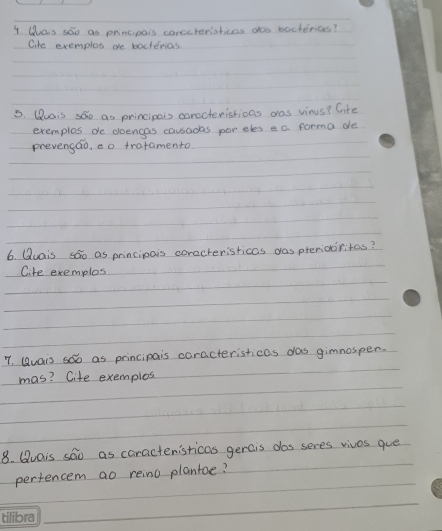 4. Quais são as principais características das bactérias?
Cite exemplos de bactérias.
5. Quais são as principais características dos vírus? Cite
exemplos de doenças causadas por eles e a forma de
prevenção, e o tratamento
6. Quais são as principais características das pteridófitas?
Cite exemplos
7. Quais são as principais características das gimnosper-
mas? Cite exemplos
8. Quais são as características gerais dos seres vivos que
pertencem ao reino plantae?
tilibra